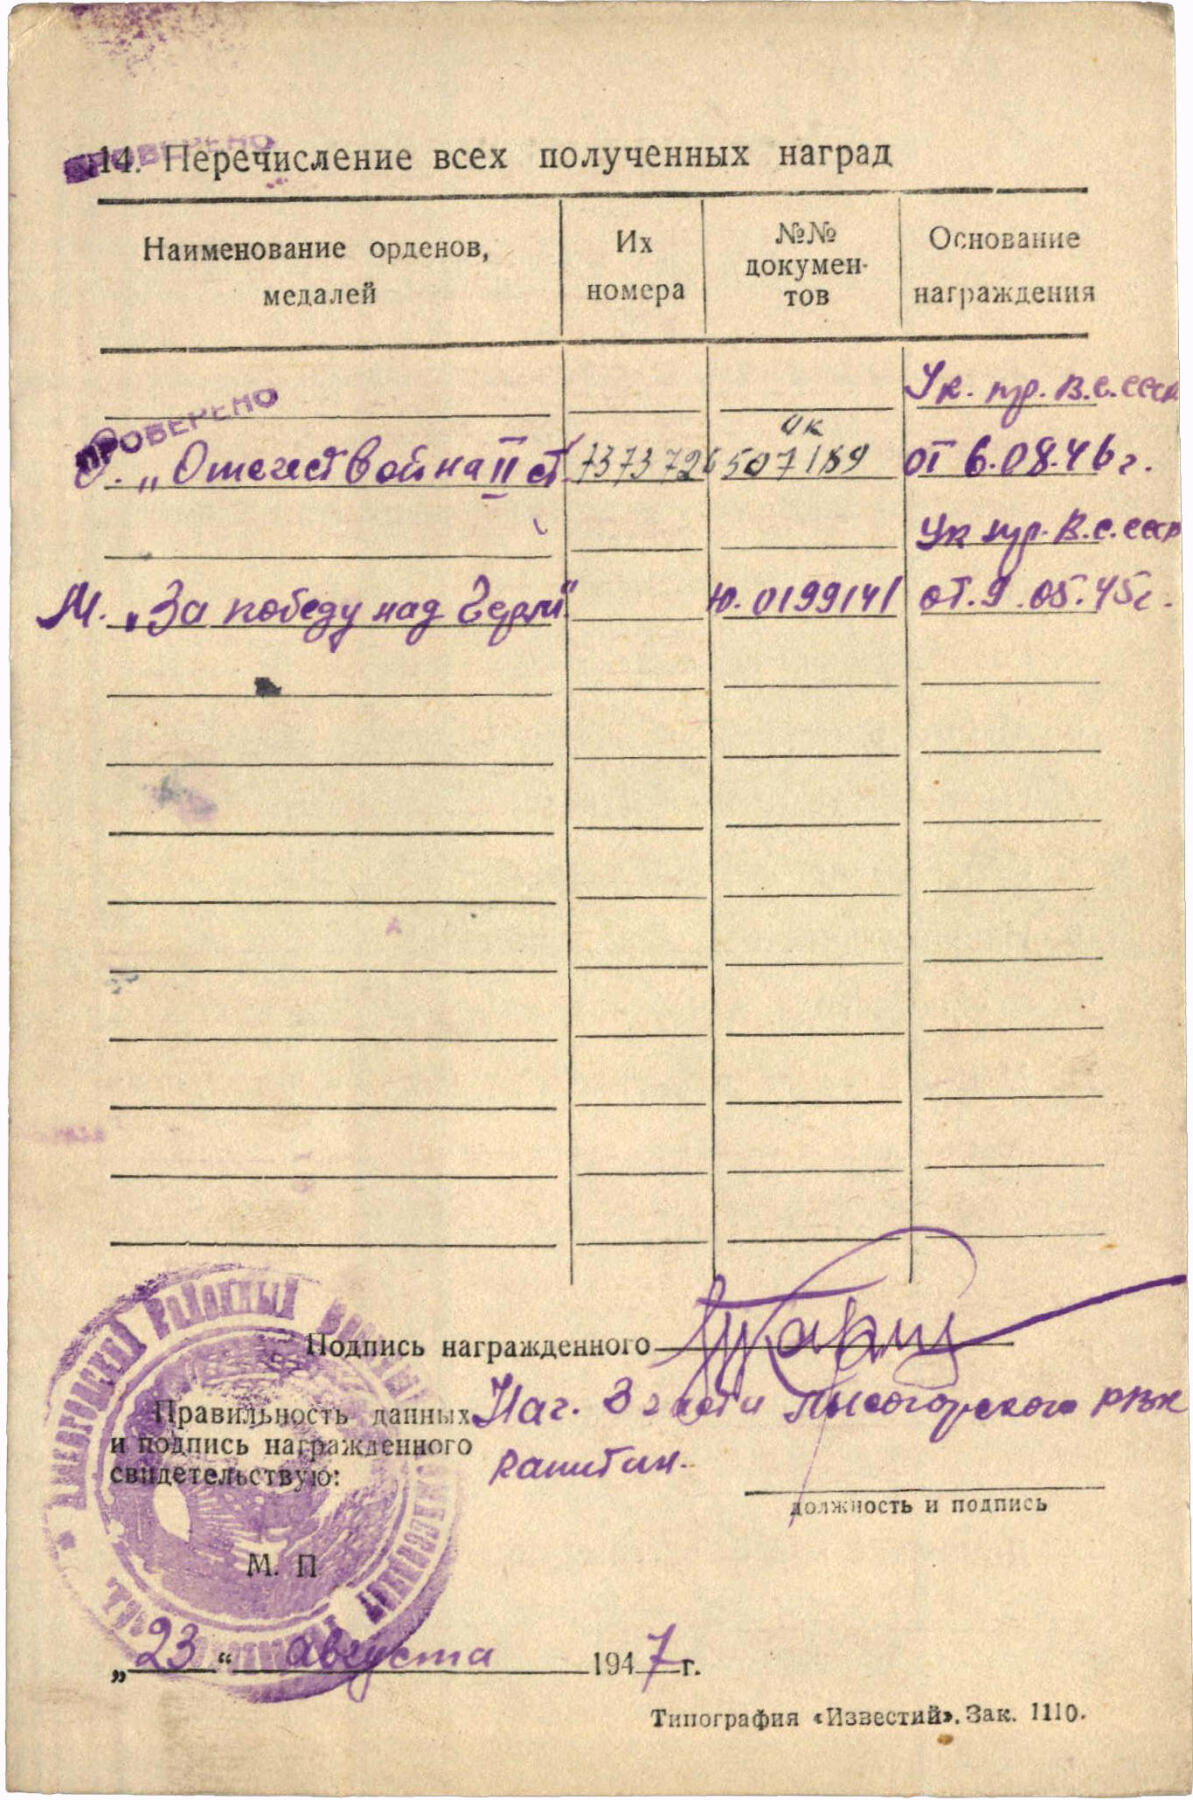 ПРОВЕРЕНО
14. Перечисление всех полученных наград
Наименование орденов, медалей
Их номера
№№ докумен-тов
Основание награждения
Ук. пр. В.С. СССР
ПРОВЕРЕНО
О. „Отечеств войны II ст 737372 507189 от 6.08.46 г.
Ук пр. В.С. СССР
М. „За победу над Герм“ Ю.0199141 от.9.05.45г.
Подпись награжденного
Правильность данных Нач. 3 части Лысогорского РВК
и подпись награжденного капитан.
свидетельствую:
должность и подпись
М. П
„23“ августа 1947 г.
Типография «Известий». Зак. 1110.